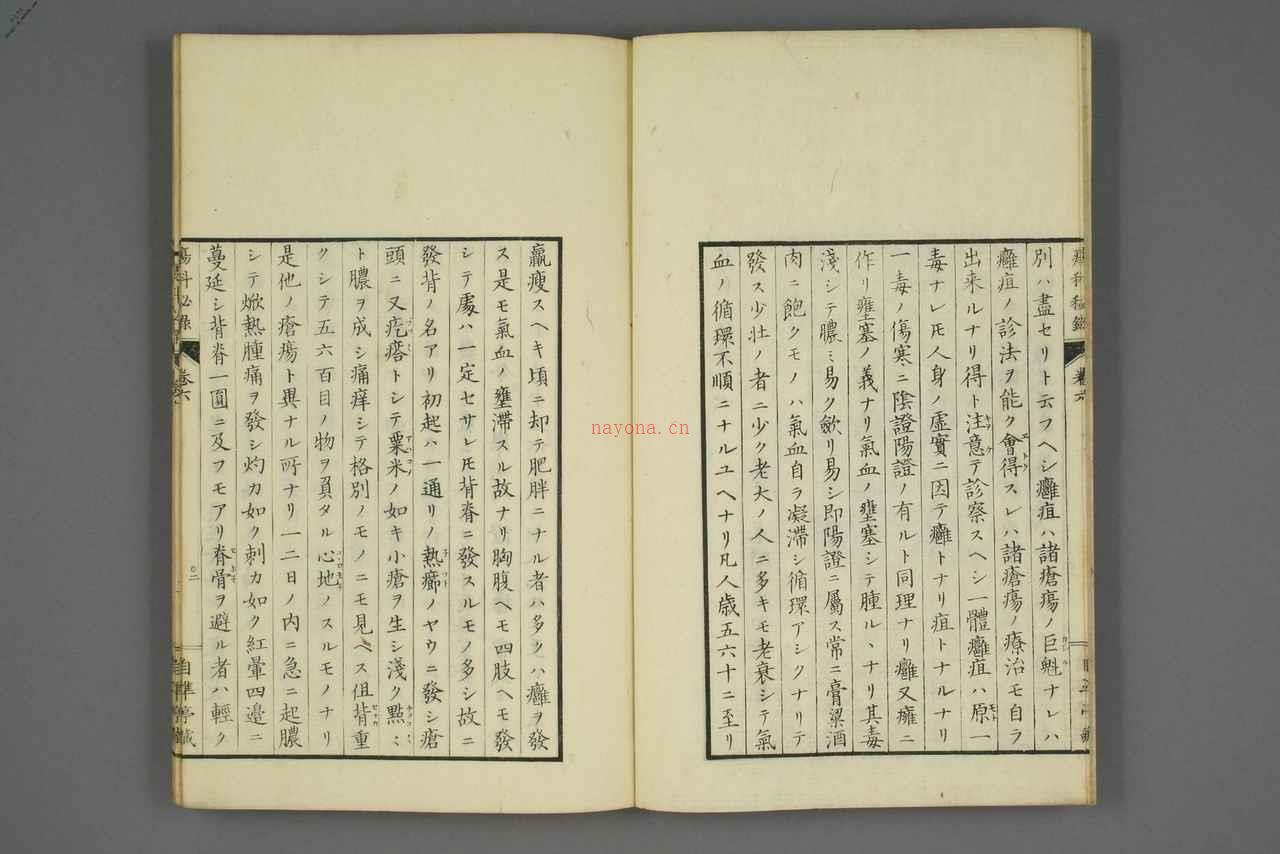 別ハ盡セリト云フヘシ癰疽ハ諸瘡瘍ノ巨魁ナレハ
癰疽ノ診法ヲ能ク會得スレハ諸瘡瘍ノ療治モ自ラ
出来ルナリ得ト注意テ診察スヘシ一體癰疽ハ原一
毒ナレ𪜈人身ノ虚實ニ因テ癰トナリ疽トナルナリ
一毒ノ傷寒ニ陰證陽證ノ有ルト同理ナリ癰又癕ニ
作リ壅塞ノ義ナリ氣血ノ壅塞シテ腫ルヽナリ其毒
淺シテ膿ミ易ク斂リ易シ即陽證ニ屬ス常ニ膏粱酒
肉ニ飽クモノハ氣血自ラ凝滯シ循環アシクナリテ
發ス少壮ノ者ニ少ク老大ノ人ニ多キモ老衰シテ氣
血ノ循環不順ニナルユヘナリ凡人歳五六十ニ至リ
羸瘦スヘキ頃ニ却テ肥胖ニナル者ハ多クハ癰ヲ發
ス是モ氣血ノ壅滯スル故ナリ胸腹ヘモ四肢ヘモ發
シテ處ハ一定セサレ𪜈背脊ニ發スルモノ多シ故ニ
發背ノ名アリ初起ハ一通リノ熱癤ノヤウニ發シ瘡
頭ニ又疙瘩トシテ粟米ノ如キ小瘡ヲ生シ淺ク點ミ
ト膿ヲ成シ痛痒シテ格別ノモノニモ見ヘス但背重
クシテ五六百目ノ物ヲ負タル心地ノスルモノナリ
是他ノ瘡瘍ト異ナル所ナリ一二日ノ内ニ急ニ起膿
シテ焮熱腫痛ヲ發シ灼カ如ク刺カ如ク紅暈四邉ニ
蔓延シ背脊一圓ニ及フモアリ脊骨ヲ避ル者ハ輕ク
瘍科秘録
卷六
〇二
自準亭藏
nayona.cn